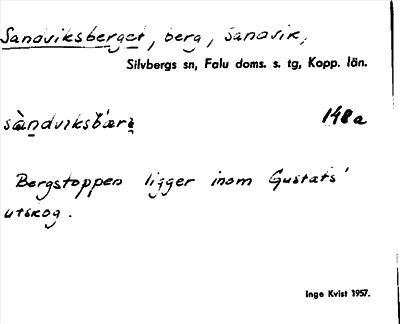 Sandviksberget, berg, Sandvik,
Silvbergs sn, Falu doms. s. tg, Kopp. län.
148a
Bergstoppen ligger inom Gustafs'
utskog.
Inge Kvist 1957.